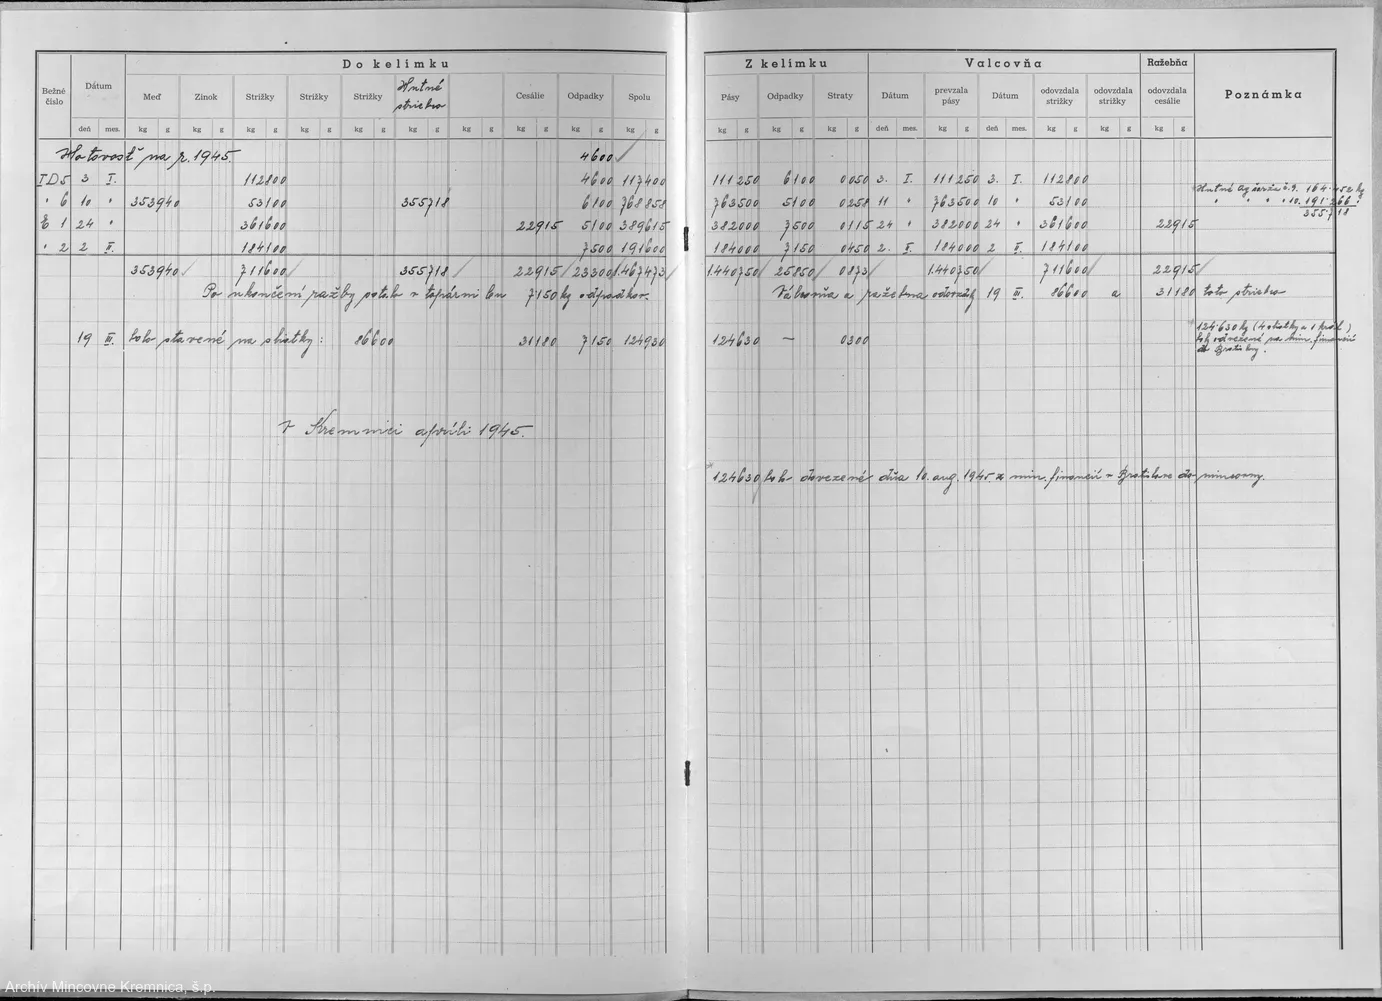 Do kelímku
Bežné číslo Dátum Meď Zinok Strižky Strižky Strižky Hutné striebro Cesálie Odpadky Spolu
deň mes. kg g kg g kg g kg g kg g kg g kg g kg g kg g kg g
Hotovosť na r. 1945. 4600
I D 5 3 I. 112800 4600 117400
" 6 10 " 353940 53100 355718 6100 768858
E 1 24 " 361600 22915 5100 389615
" 2 2 II. 184100 7500 191600
353940 711600 355718 22915 23300 1.467473
Po ukončení ražby ostalo v topiarni len 7150 kg odpadkov.
19 III. bolo stavené na sliatky: 86600 31180 7150 124930
V Kremnici apríli 1945.
Z kelímku Valcovňa Ražebňa
Pásy Odpadky Straty Dátum prevzala pásy Dátum odovzdala strižky odovzdala strižky odovzdala cesálie Poznámka
kg g kg g kg g deň mes. kg g deň mes. kg g kg g kg g
111250 6100 0050 3. I. 111250 3. I. 112800
763500 5100 0258 11 " 763500 10 " 53100 Hutné Ag šarža č. 9. 164.452 kg
" " " " 10. 191.266 "
355.718
382000 7500 0115 24 " 382000 24 " 361600 22915
184000 7150 0450 2. II. 184000 2 II. 184100
1.440750 25850 0873 1.440750 711600 22915
Válcovňa a ražebna odovzdaly 19 III. 86600 a 31180 toto striebro
124630 — 0300
124.630 kg (4 sliatky a 1 kráľ)
bolo odvezené na min. financií
do Bratislavy.
124630 bolo dovezené dňa 10. aug. 1945 z min. financií v Bratislave do mincovny.
Archív Mincovne Kremnica, š.p.